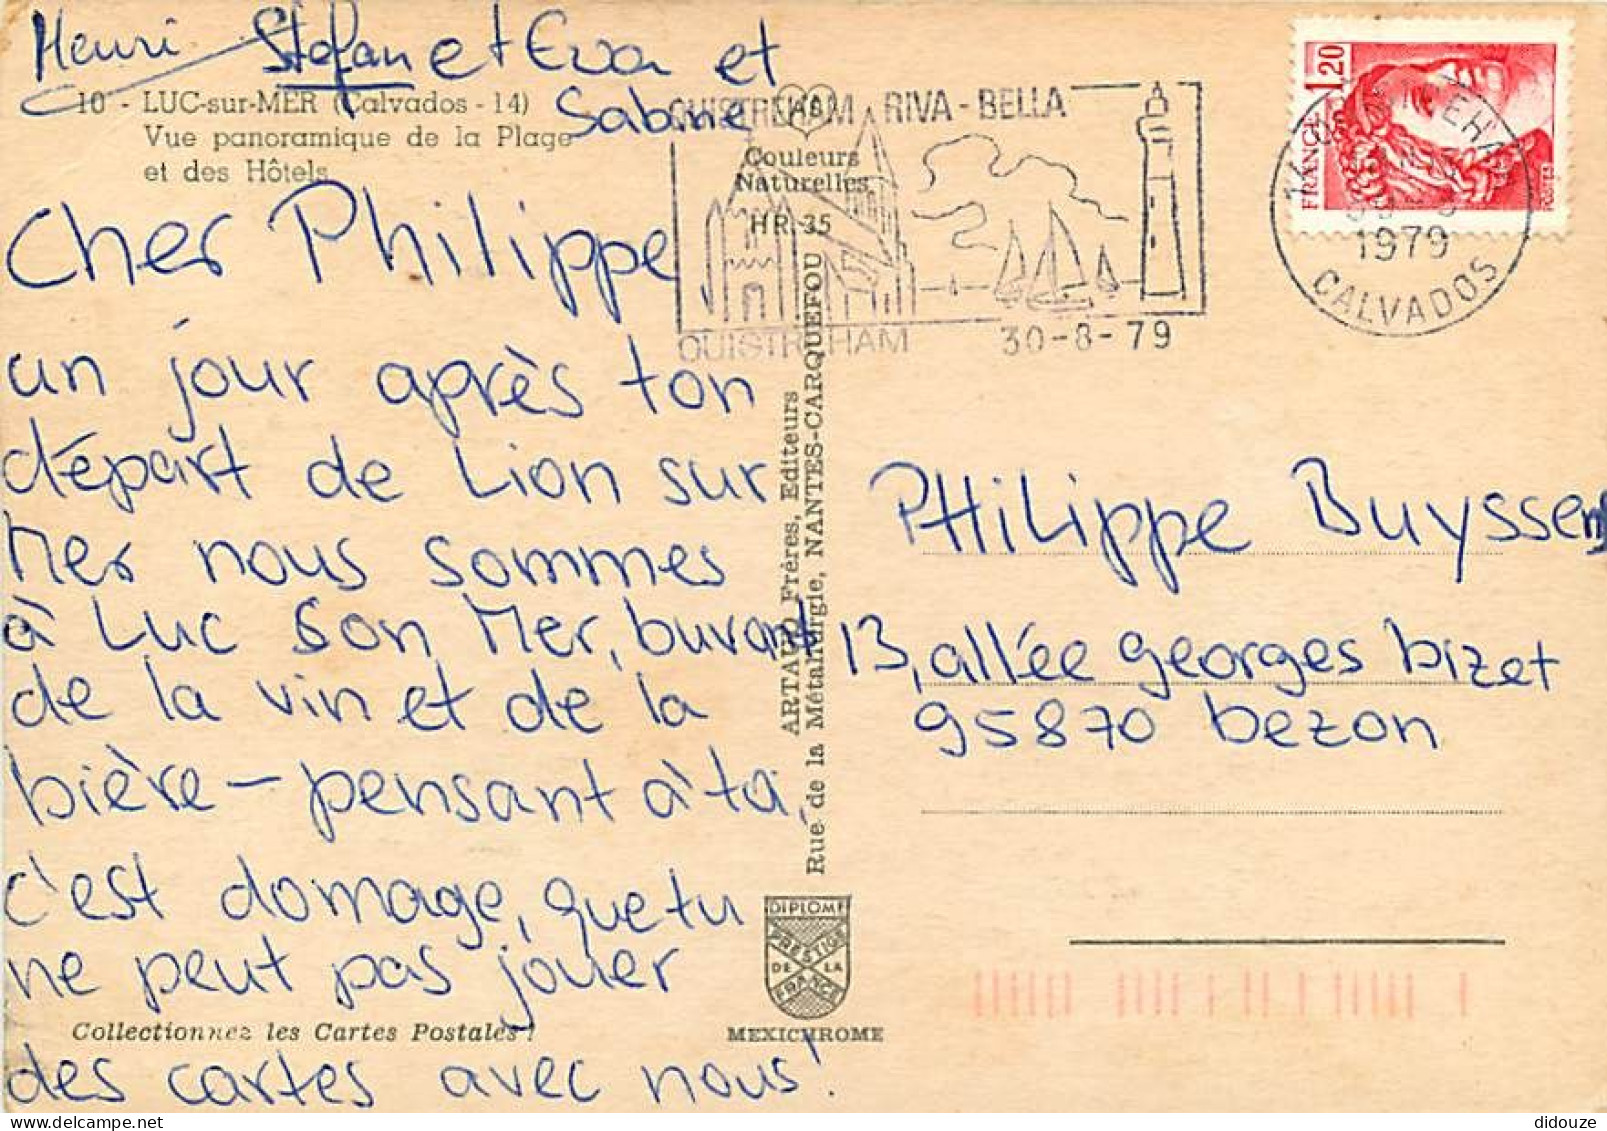 Henri Stefan et Eva et
Sabine
10 - LUC-sur-MER (Calvados - 14)
Vue panoramique de la Plage
et des Hôtels
Cher Philippe,
un jour après ton
départ de Lion sur
Mer nous sommes
à Luc Son Mer, buvant
de la vin et de la
bière - pensant à ta,
c'est domage, que tu
ne peut pas jouer
des cartes avec nous!
Collectionnez les Cartes Postales !
Couleurs
Naturelles
HR. 35
ARTAUD Frères, Editeurs
Rue de la Métallurgie, NANTES-CARQUEFOU
DIPLOME
PRESTIGE
DE LA
FRANCE
MEXICHROME
OUISTREHAM RIVA-BELLA
OUISTREHAM 30-8-79
1,20
FRANCE
POSTES
14 OUISTREHAM
1979
CALVADOS
PHiLippe Buyssens
13, allée georges bizet
95870 bezon
didouze